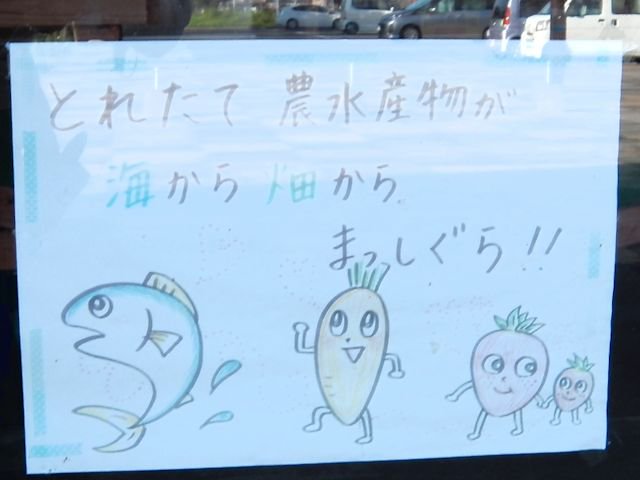 とれたて 農水産物が
海から 畑から
まっしぐら!!